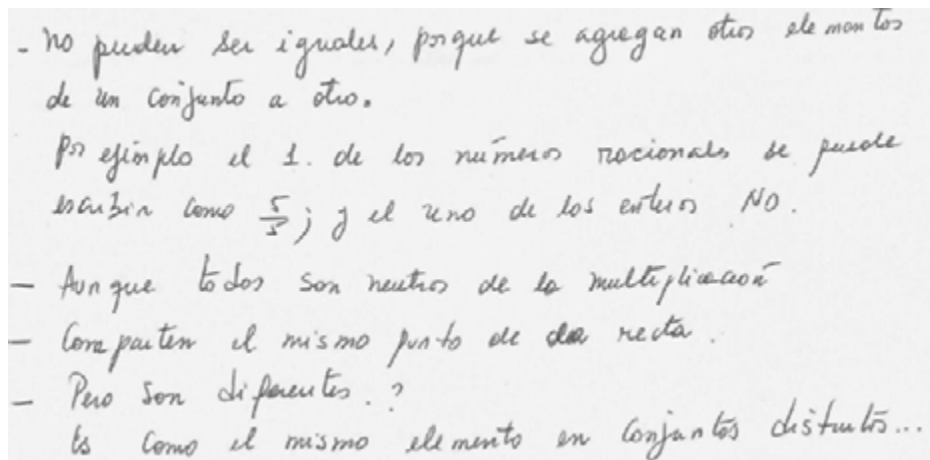 - no pueden ser iguales, porque se agregan otros elementos
de un conjunto a otro.
Por ejemplo el 1. de los números racionales se puede
escribir como 5/5; y el uno de los enteros NO.
- Aunque todos son neutros de la multiplicación
- Comparten el mismo punto de la recta.
- Pero son diferentes. ?
Es como el mismo elemento en conjuntos distintos...